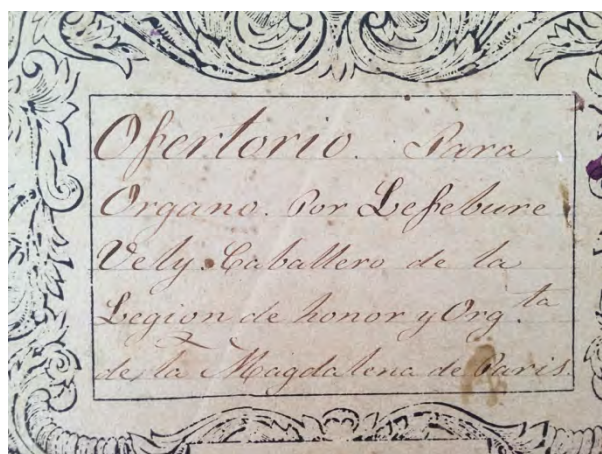 Ofertorio. Para
Organo. Por Lefebure
Vely. Caballero de la
Legion de honor y Org.ta
de la Magdalena de Paris.